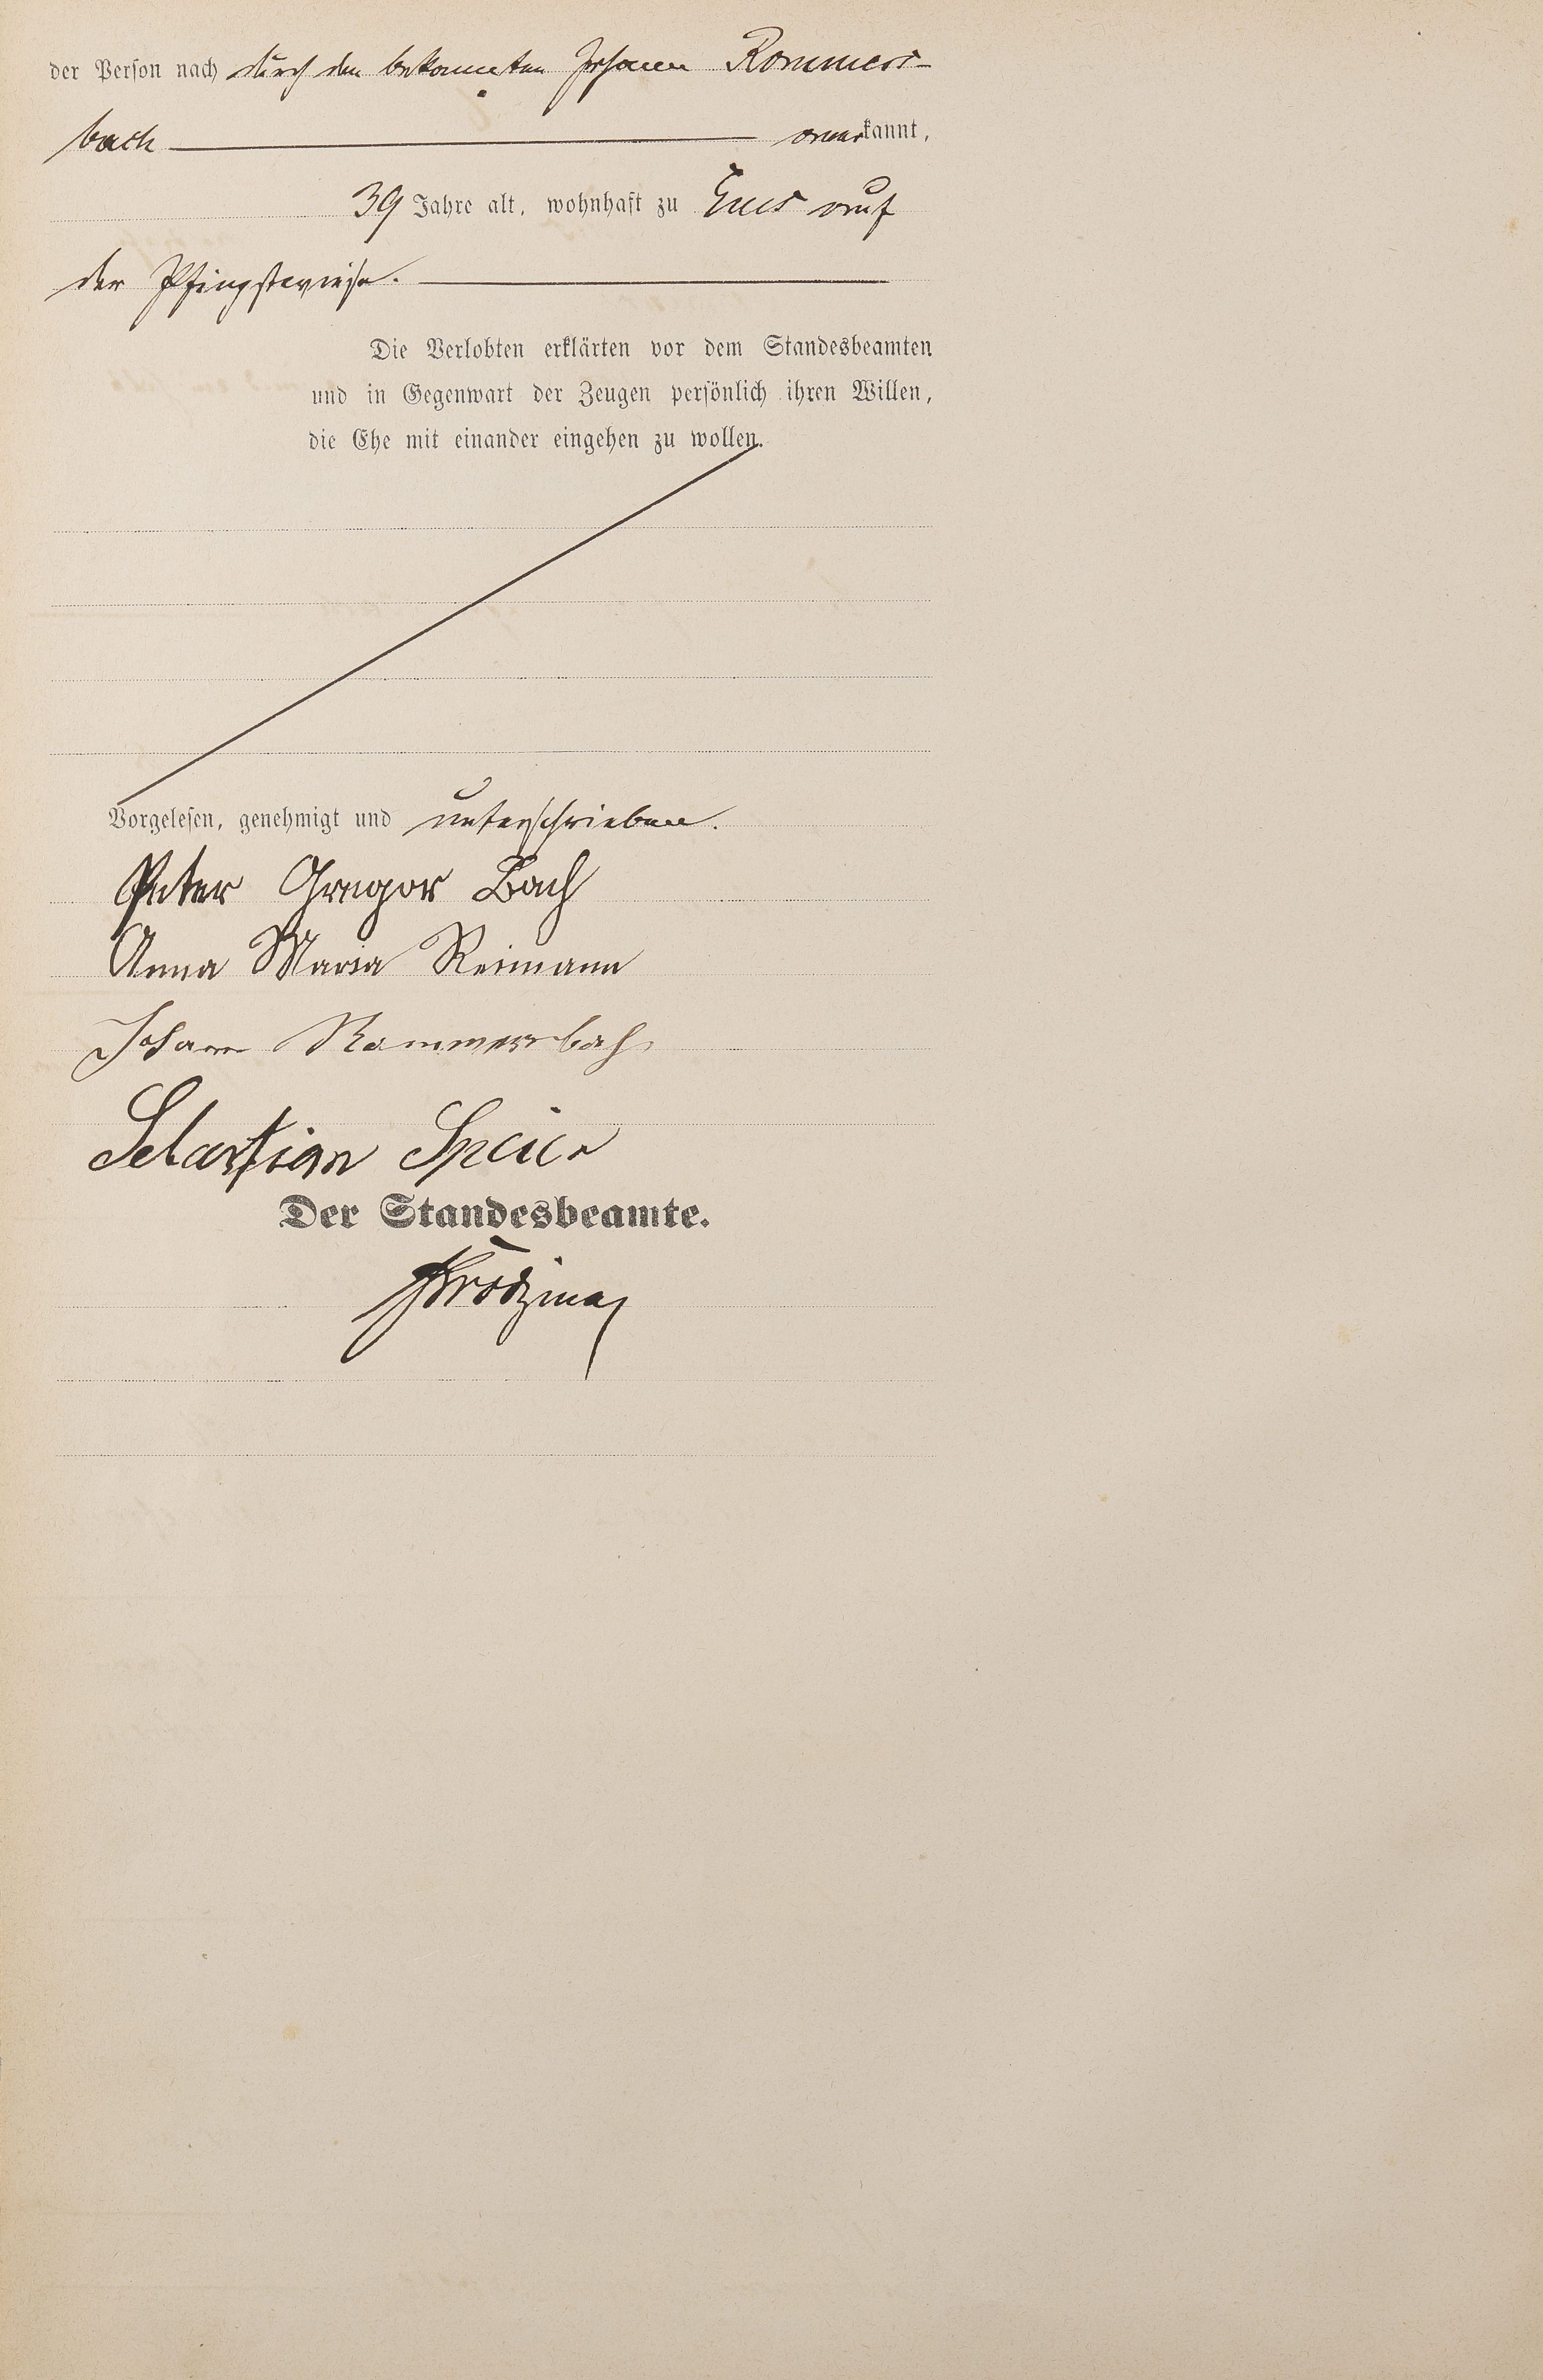 der Person nach durch den bekannten Johann Rommers-
bach anerkannt,
39 Jahre alt, wohnhaft zu Ems auf
der Pfingstwiese.
Die Verlobten erklärten vor dem Standesbeamten
und in Gegenwart der Zeugen persönlich ihren Willen,
die Ehe mit einander eingehen zu wollen.
Vorgelesen, genehmigt und unterschrieben.
Peter Gregor Bach
Anna Maria Reimann
Johann Rommersbach
Sebastian
Der Standesbeamte.